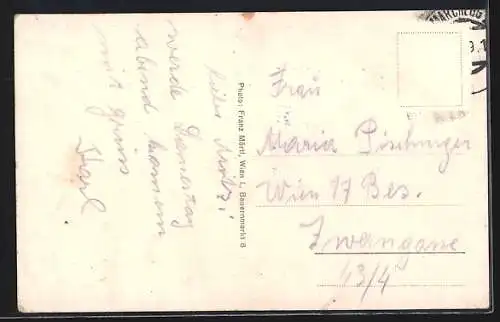 Liebe
werde Donnerstag
abend kommen
mit Gruss
Karl
Photo: Franz Mörtl, Wien I., Bauernmarkt 8
Frau
Maria Pischinger
Wien 17 Bes.
Zwangasse
43/4